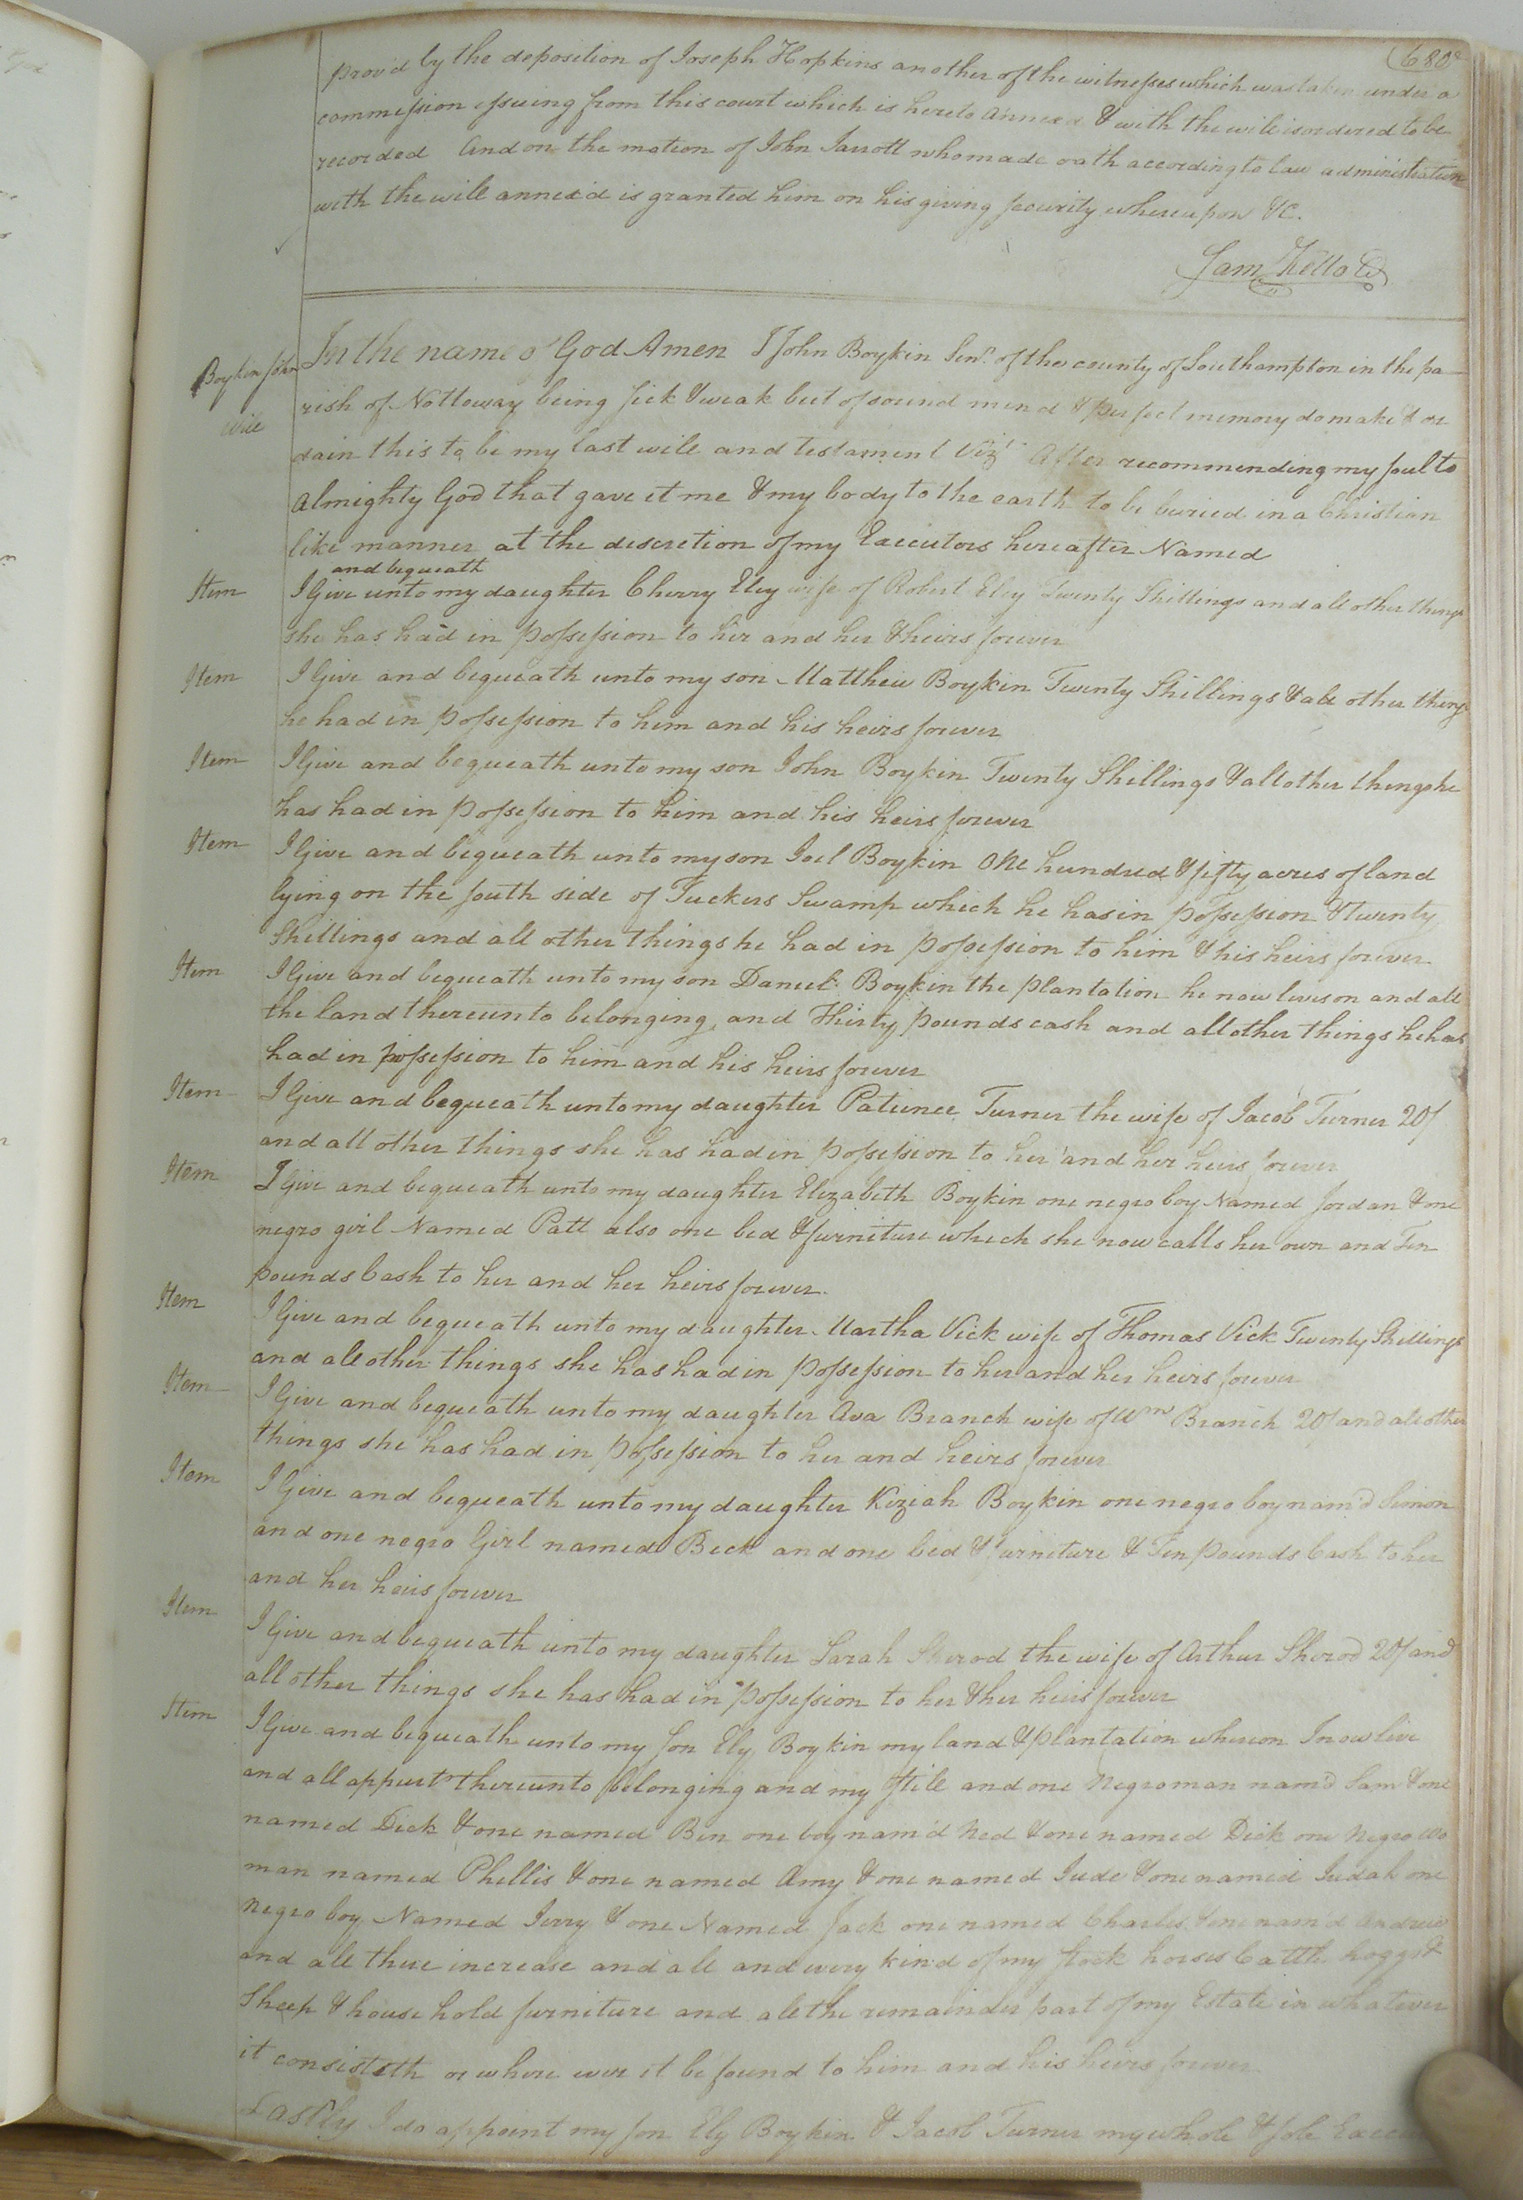 680
provd by the deposition of Joseph Hopkins another of the witnesses which was taken under a
commission issuing from this court which is hereto annexed & with the will is ordered to be
recorded And on the motion of John Jarrott who made oath according to law administration
with the will annex'd is granted him on his giving security whereupon &c.
Sam Kello Ck
Boykin John
will
In the name o' God Amen I John Boykin Senr. of the county of Southampton in the pa
rish of Nottoway being sick & weak but of sound mind & perfect memory do make & or
dain this to be my last will and testament Vizt After recommending my soul to
Almighty God that gave it me & my body to the earth to be buried in a Christian
like manner at the discretion of my Executors hereafter Named
and bequeath
Item I Give unto my daughter Cherry Eley wife of Robert Eley Twenty Shillings and all other things
she has had in possession to her and her & heirs forever
Item I Give and bequeath unto my son Matthew Boykin Twenty Shillings & all other things
he had in possession to him and his heirs forever
Item I Give and bequeath unto my son John Boykin Twenty Shillings & all other things he
has had in possession to him and his heirs forever
Item I Give and bequeath unto my son Joel Boykin One hundred & fifty acres of land
lying on the south side of Tuckers Swamp which he has in possession & Twenty
Shillings and all other things he had in possession to him & his heirs forever
Item I Give and bequeath unto my son Daniel Boykin the plantation he now lives on and all
the land thereunto belonging, and Thirty pounds cash and all other things he has
had in possession to him and his heirs forever
Item I Give and bequeath unto my daughter Patience Turner the wife of Jacob Turner 20/
and all other things she has had in possession to her and her heirs forever
Item I Give and bequeath unto my daughter Elizabeth Boykin one negro boy Named Jordan & one
negro girl Named Patt also one bed & furniture which she now calls her own and Ten
pounds Cash to her and her heirs forever.
Item I Give and bequeath unto my daughter Martha Vick wife of Thomas Vick Twenty Shillings
and all other things she has had in possession to her and her heirs forever
Item I Give and bequeath unto my daughter Ava Branch wife of Wm Branch 20/ and all other
things she has had in possession to her and heirs forever
Item I Give and bequeath unto my daughter Kiziah Boykin one negro boy nam'd Simon
and one negro Girl named Beck and one bed & furniture & Ten pounds Cash to her
and her heirs forever
Item I Give and bequeath unto my daughter Sarah Sherod the wife of Arthur Sherod 20/ and
all other things she has had in possession to her & her heirs forever
Item I Give and bequeath unto my son Ely Boykin my land & plantation whereon I now live
and all appurts thereunto belonging and my still and one Negro man nam'd Sam & one
named Dick & one named Ben one boy nam'd Ned & one named Dick one Negro wo
man named Phillis & one named Amy & one named Jude & one named Judah one
Negro boy Named Jerry & one Named Jack one named Charles & one nam'd Andrew
and all there increase and all and every kind of my stock horses Cattle hoggs &
Sheep & household furniture and all the remainder part of my Estate in whatever
it consisteth or where ever it be found to him and his heirs forever
Lastly I do appoint my son Ely Boykin & Jacob Turner my whole & sole